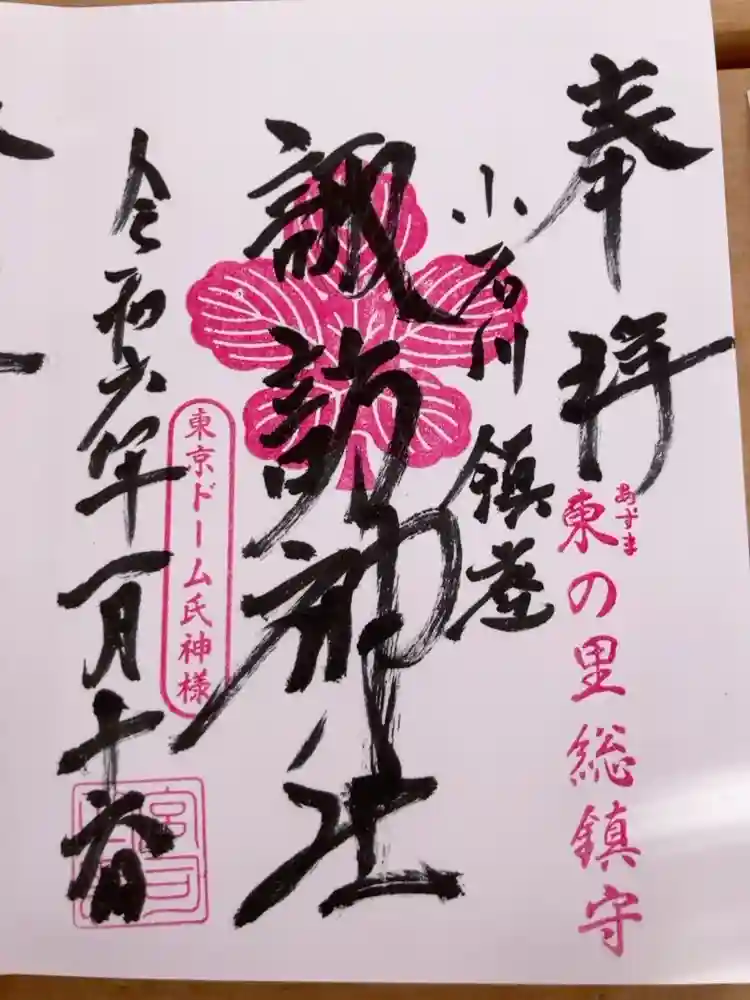 奉拝
あずま
東の里総鎮守
小石川
鎮座
諏訪神社
東京ドーム氏神様
令和六年一月十六日